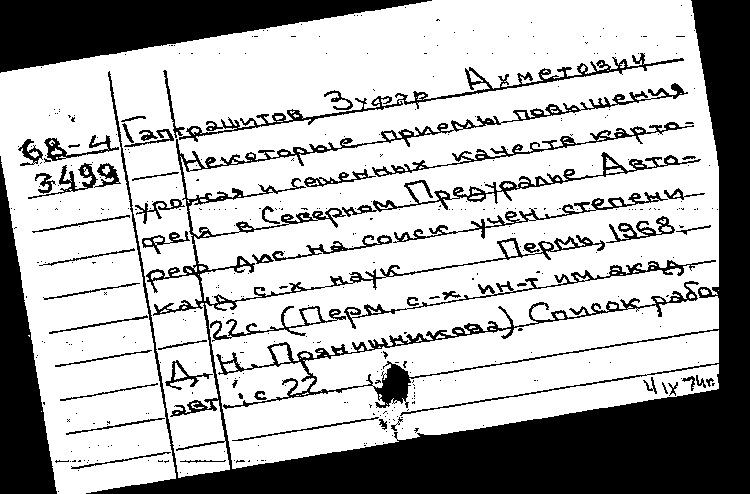 68-4
3499
Гаптрашитов, Зуфар Ахметович
Некоторые приемы повышения
урожая и семенных качеств карто-
феля в Северном Предуралье. Авто-
реф. дис. на соиск. учен. степени
канд. с.-х. наук Пермь, 1968.
22 с. (Перм. с.-х. ин-т им. акад.
Д. Н. Прянишникова). Список работ
авт.: с. 22.
4 IX 74г.